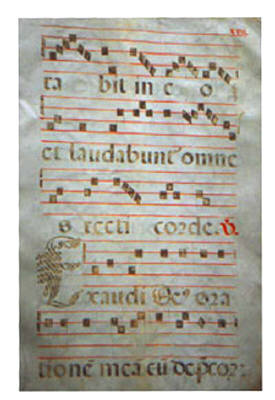 ta bit in e o
et laudabunt omne
s recti corde. V.
Exaudi de9 ora
tione mea cu depcor